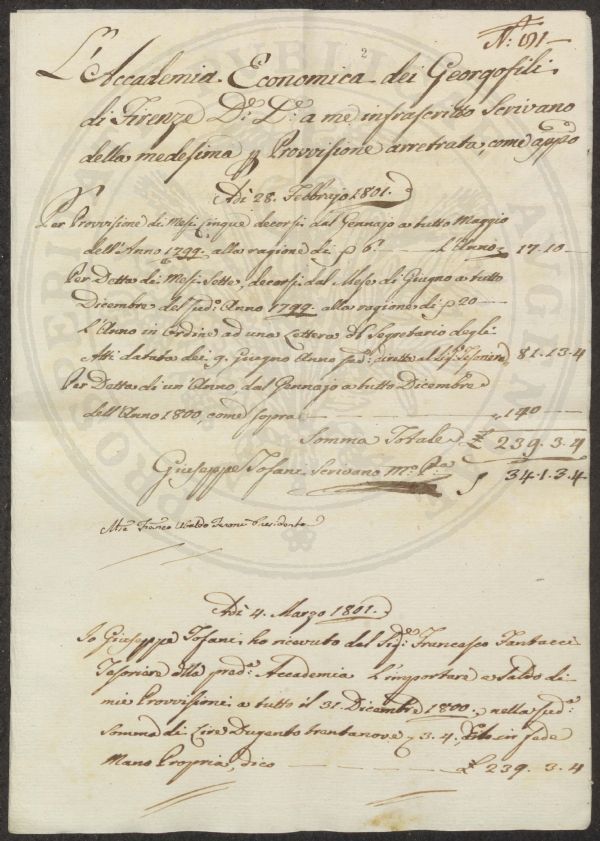 N.° 191
2
L'Accademia Economica dei Georgofili
di Firenze D.e D.e a me infrascritto Scrivano
della medesima p Provvisione arretrata, come app.o
Adì 28. Febbrajo 1801.
Per Provvisione di Mesi Cinque decorsi dal Gennajo a tutto Maggio
dell'Anno 1799. alla ragione di p 6. L'Anno 17.10
Per Detta de' Mesi Sette, decorsi dal Mese di Giugno a tutto
Dicembre del sud.o Anno 1799 alla ragione di p 20
L'Anno in ordine ad una Lettera del Segretario degli
Atti datata dei 9. Giugno Anno sud.o diretta al Sig.r Tesoriere 81.13.4
Per Detta di un'Anno dal Gennajo a tutto Dicembre
dell'Anno 1800. come sopra 140
Somma Totale £ 239.3.4
Giuseppe Tofani Scrivano M.o P.a 34.1.3.4
Ubaldo Presidente
Adì 4. Marzo 1801.
Io Giuseppe Tofani ho ricevuto dal Sig.re Francesco Fantacci
Tesoriere della pred.a Accademia L'importare a Saldo di
mie Provvisioni a tutto il 31. Dicembre 1800., nella sud.a
Somma di Lire Dugento trentanove 3.4., in fede
Mano Propria, dico £ 239.3.4
PROSPERITATI PUBLICAE AUGENDAE